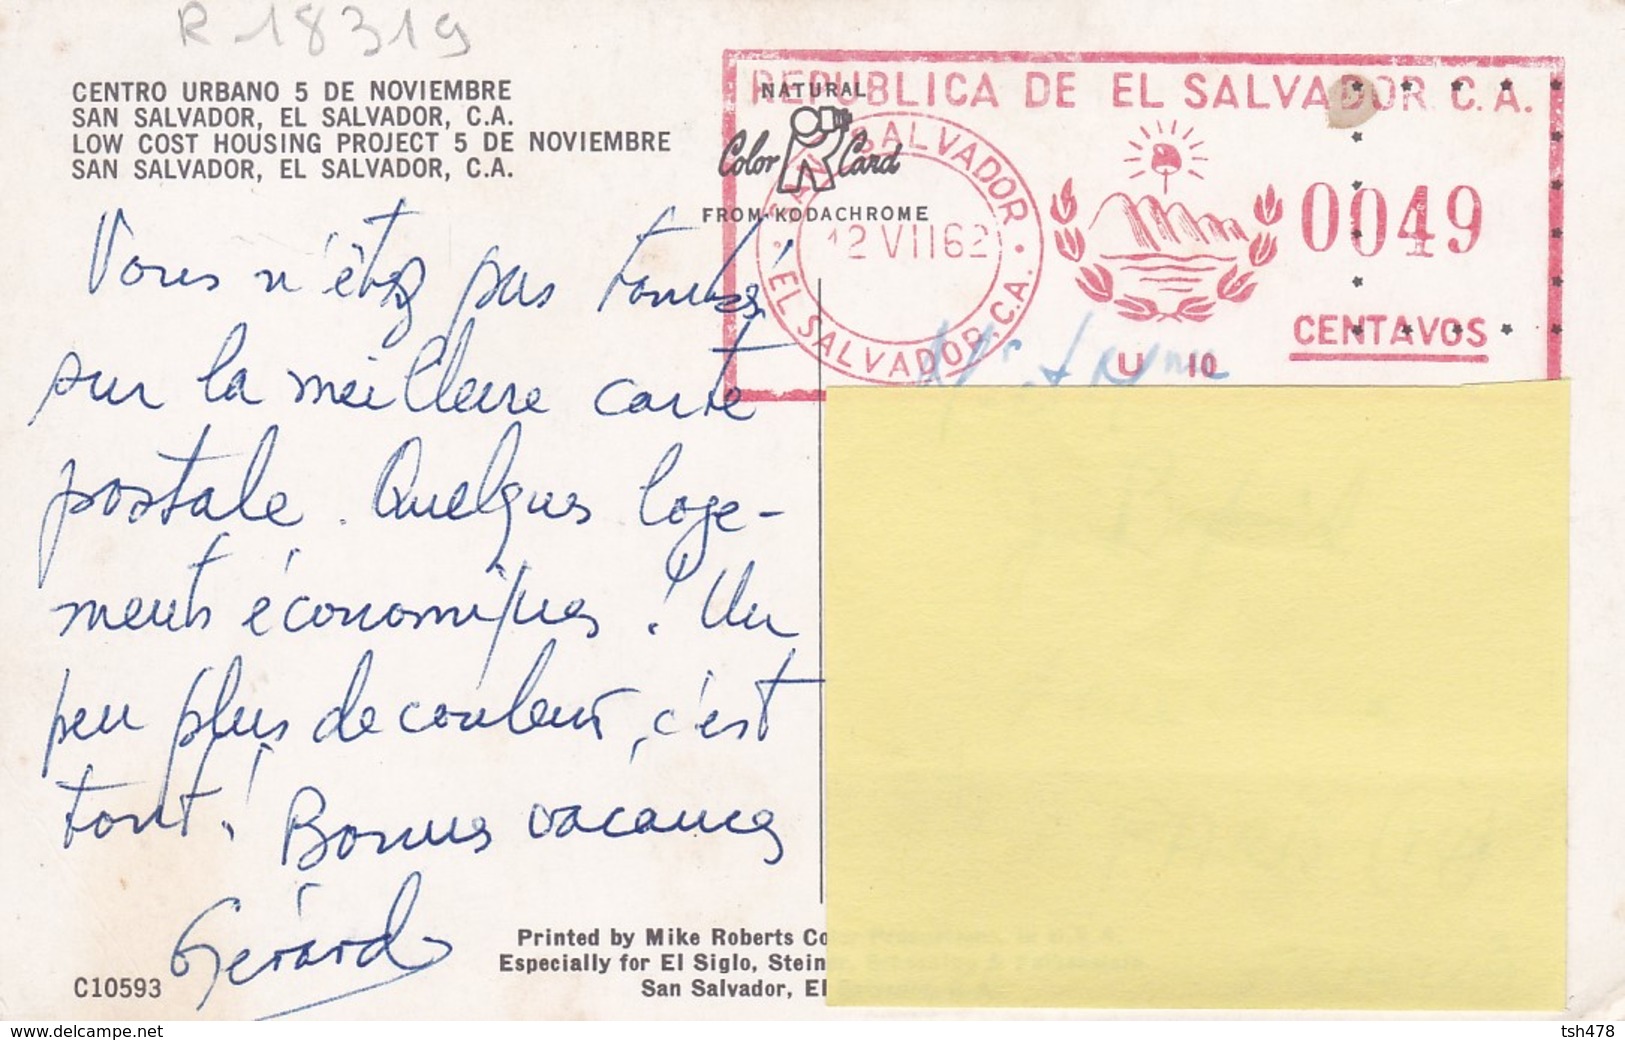 R 18319
CENTRO URBANO 5 DE NOVIEMBRE
SAN SALVADOR, EL SALVADOR, C.A.
LOW COST HOUSING PROJECT 5 DE NOVIEMBRE
SAN SALVADOR, EL SALVADOR, C.A.
NATURAL
Color Card
FROM KODACHROME
REPUBLICA DE EL SALVADOR C.A.
SAN SALVADOR
12 VII 62
EL SALVADOR, C.A.
0049
CENTAVOS
U 10
Vous n'êtes pas tombés
sur la meilleure carte
postale. Quelques loge-
ments économiques ! Un
peu plus de couleur, c'est
tout ! Bonnes vacances
Gérard
Printed by Mike Roberts Co
Especially for El Siglo, Stein
San Salvador, El
C10593
www.delcampe.net
tsh478